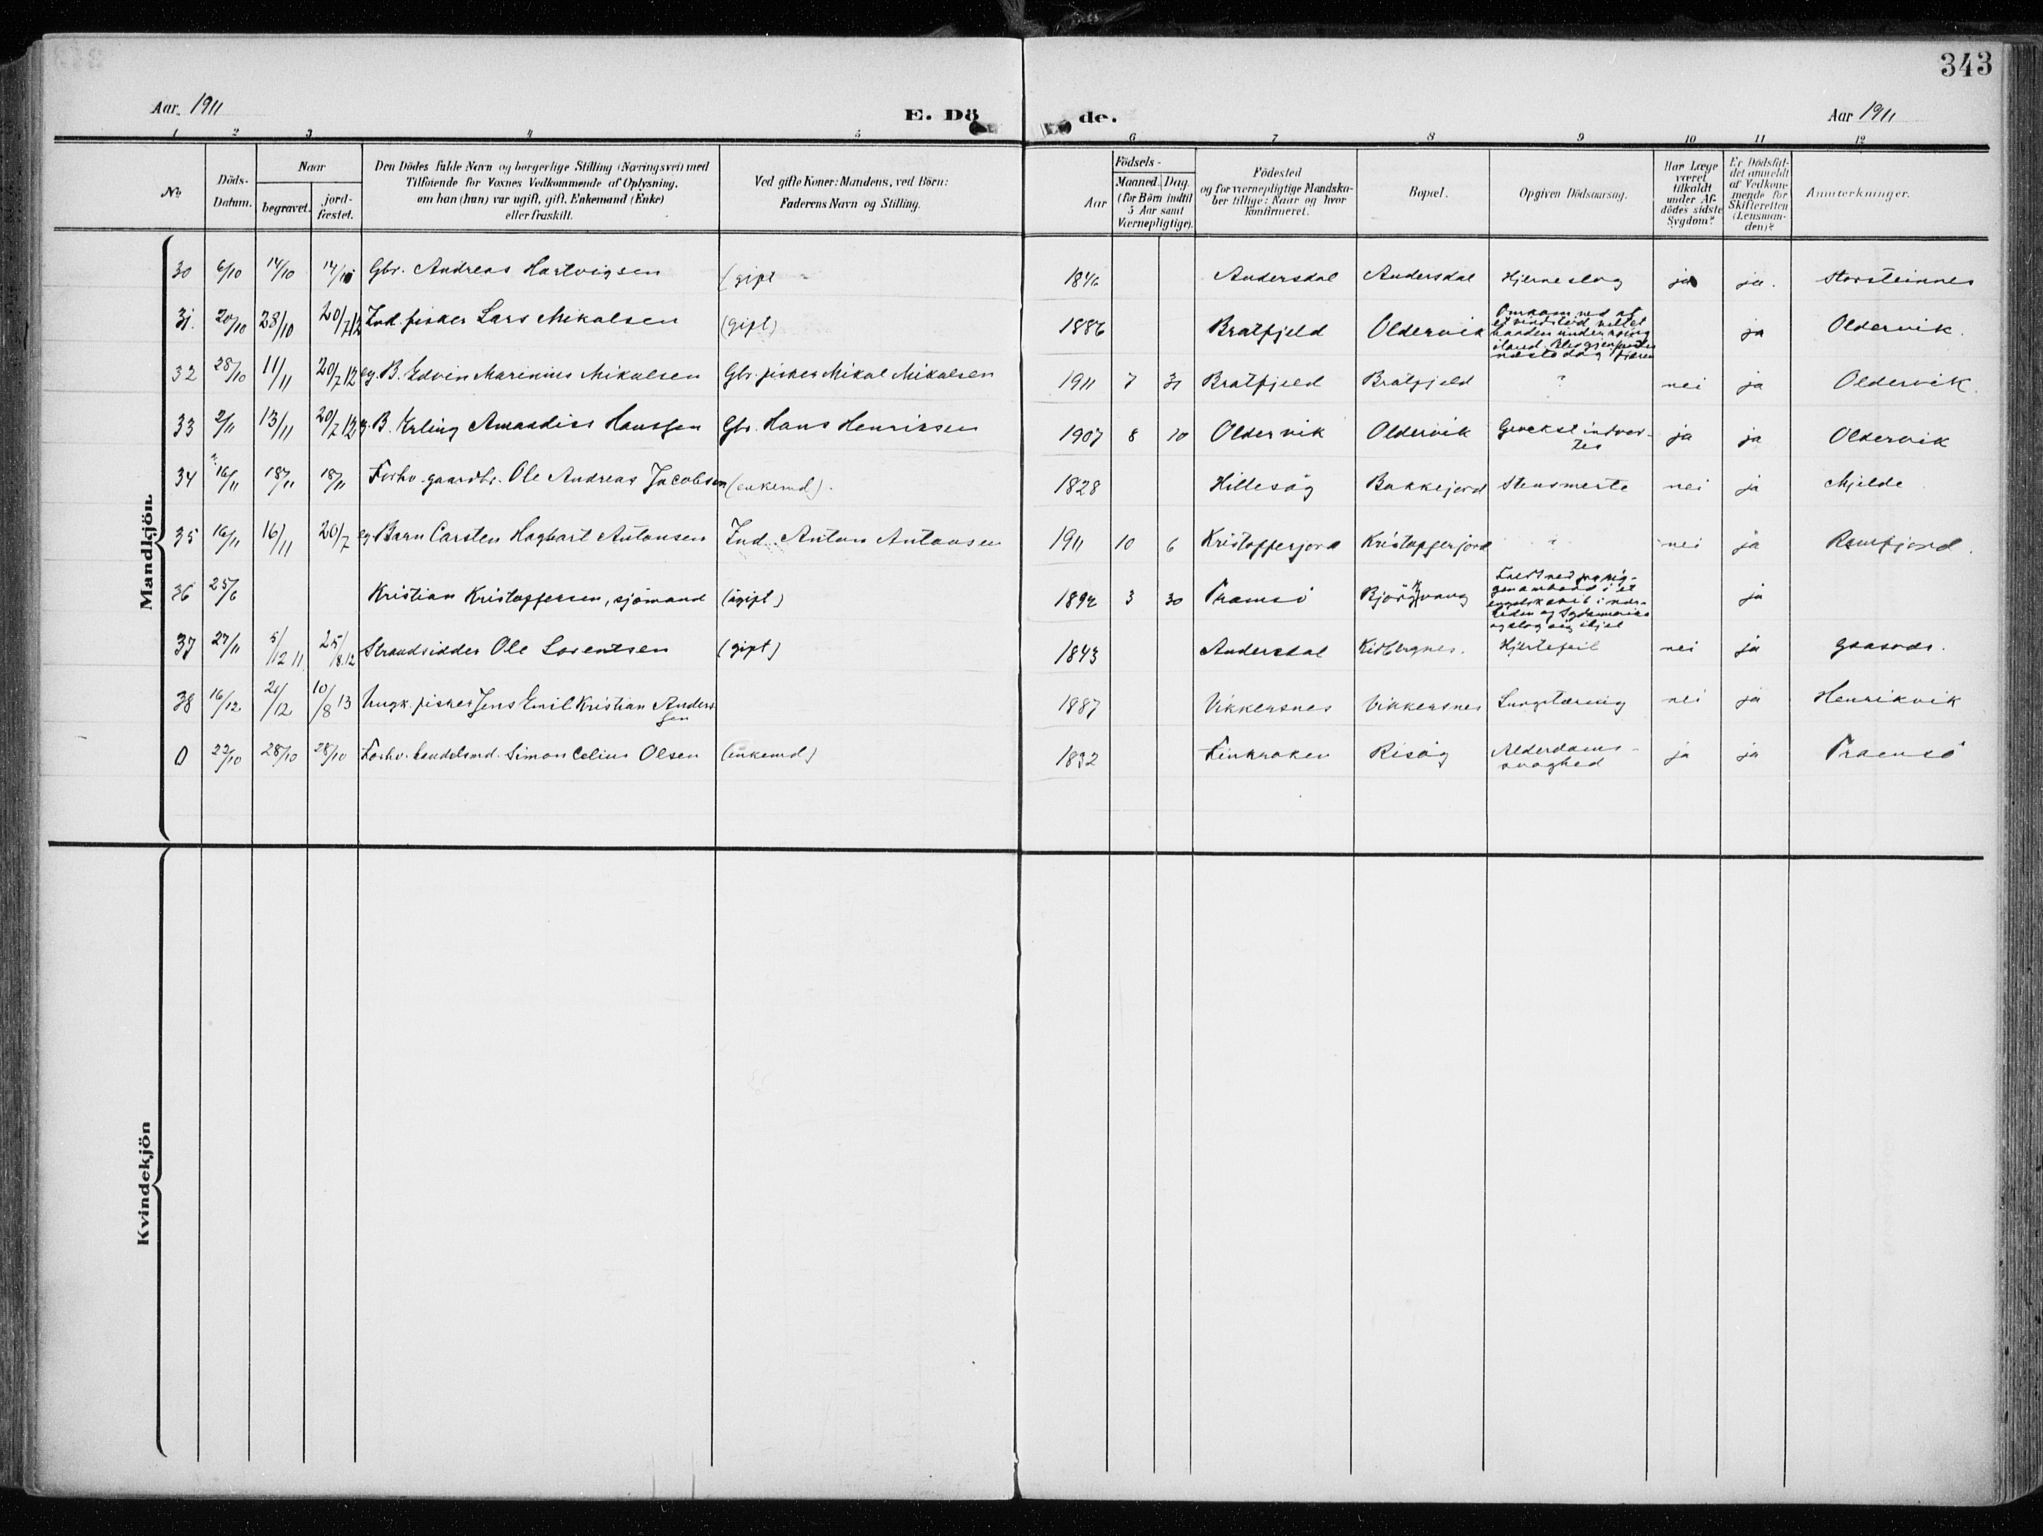 343
Aar 1911
E. Dö de.
Aar 1911
1 2 3 4 5 6 7 8 9 10 11 12
No
Döds-
Datum.
Naar
begravet.
jord-
fæstet.
Den Dödes fulde Navn og borgerlige Stilling (Næringsvei) med
Tilföiende for Voxnes Vedkommende af Oplysning,
om han (hun) var ugift, gift, Enkemand (Enke)
eller fraskilt.
Ved gifte Koner: Mandens, ved Börn:
Faderens Navn og Stilling.
Födsels-
Aar
Maaned. Dag.
(for Börn indtil
5 Aar samt
Værnepligtige).
Födested
og for værnepligtige Mandska-
ber tillige: Naar og hvor
konfirmeret.
Bopæl.
Opgiven Dödsaarsag.
Har Læge
været
tilkaldt
under Af-
dödes sidste
Sygdom?
Er Dödsfal-
det anmeldt
af Vedkom-
mende for
Skifteretten
(Lensman-
den)?
Anmærkninger.
Mandkjön.
30 6/10 14/10 14/10 Gbr. Andreas Hartvigsen (gift 1846 Andersdal Andersdal Hjerneslag ja ja. Storsteinnes
31. 20/10 28/10 20/7 12 Ind. fisker Lars Mikalsen (gift) 1886 Bratfjeld Oldervik Omkom ved at
et vindstød
baaden under
iland.
næste dag
ja Oldervik.
32 28/10 11/11 20/7 12 eg. B. Edvin Marinius Mikalsen Gbr. fisker Mikal Mikalsen 1911 7 31 Bratfjeld Bratfjeld ? nei ja Oldervik.
33 2/11 13/11 20/7 12 eg. B. Erling Amandius Hanssen Gbr. Hans Henriksen 1907 8 10 Oldervik Oldervik indvor-
tes ja ja Oldervik
34 16/11 18/11 18/11 Forhv. gaardbr. Ole Andreas Jacobsen (enkemd). 1828 Hillesög Bakkejord Stensmerte nei ja Mjelde
35 16/11 16/11 20/7 eg. Barn Carsten Hagbart Antonsen Ind. Anton Antonsen 1911 10 6 Kristofferjord Kristofferjord ? nei ja
36 25/6 Kristian Kristoffersen, sjömand (ugift) 1892 3 30 Tromsö
engelsk skib i
og Sydamerika
og slog sig ihjel
ja
37 27/11 5/12 11 25/8 12 Strandsidder Ole Lorentsen (gift) 1843 Andersdal Kidbergnes. Hjertefeil nei ja
38 16/12 21/12 10/8 13 Ungk. fisker Jens Emil Kristian Anders
sen 1887 Vikkersnes Vikkersnes Lungetæring nei ja Henrikvik
0 22/10 28/10 28/10 Forhv. handelsmd. Simon Celius Olsen (enkemd) 1832 Finkroken Risög Alderdoms-
svaghed ja ja Tromsö
Kvindekjön